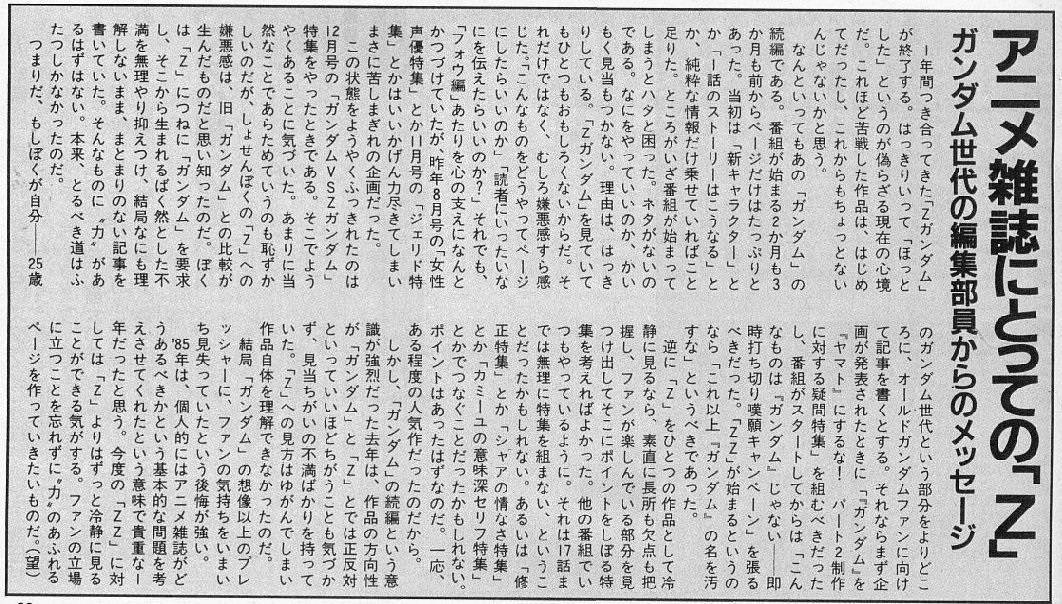 アニメ雑誌にとっての「Z」
ガンダム世代の編集部員からのメッセージ
一年間つき合ってきた「Zガンダム」
が終了する。はっきりいって「ほっと
した」というのが偽らざる現在の心境
だ。これほど苦戦した作品は、はじめ
てだったし、これからもちょっとない
んじゃないかと思う。
なんといってもあの「ガンダム」の
続編である。番組が始まる2か月も3
か月も前からページだけはたっぷりと
あった。当初は「新キャラクター」と
か「一話のストーリーはこうなる」と
か、純粋な情報だけ載せていればこと
足りた。ところがいざ番組が始まって
しまうとハタと困った。ネタがないの
である。なにをやっていいのか、かい
もく見当もつかない。理由は、はっき
りしている。「Zガンダム」を見ていて
もひとつもおもしろくないからだ。そ
れだけではなく、むしろ嫌悪感すら感
じた。"こんなものをどうやってページ
にしたらいいのか""読者にいったいな
にを伝えたらいいのか?"それでも、
「フォウ編」あたりを心の支えになんと
かつづけていたが、昨年8月号の「女性
声優特集」とか11月号の「ジェリド特
集」とかはいいかげん力尽きてしまい
まさに苦しまぎれの企画だった。
この状態をようやくふっきれたのは
12月号の「ガンダムVSZガンダム」
特集をやったときである。そこでよう
やくあることに気づいた。あまりに当
然なことであらためていうのも恥ずか
しいのだが、しょせんぼくの「Z」への
嫌悪感は、旧「ガンダム」との比較が
生んだものだと思い知ったのだ。ぼく
は「Z」につねに「ガンダム」を要求
し、そこから生まれるばく然とした不
満を無理やり抑えつけ、結局なにも理
解しないまま、まとまりのない記事を
書いていた。そんなものに〝力〟があ
るはずはない。本来、とるべき道はふ
たつしかなかったのだ。
つまりだ、もしぼくが自分——25歳
のガンダム世代という部分をよりどこ
ろに、オールドガンダムファンに向け
て記事を書くとする。それならまず企
画が発表されたときに「『ガンダム』を
『ヤマト』にするな! パート2制作
に対する疑問特集」を組むべきだった
し、番組がスタートしてからは「こん
なものは『ガンダム』じゃない——即
時打ち切り嘆願キャンペーン」を張る
べきだった。「ZZ」が始まるというの
なら「これ以上『ガンダム』の名を汚
すな」というべきであった。
逆に「Z」をひとつの作品として冷
静に見るなら、素直に長所も欠点も把
握し、ファンが楽しんでいる部分を見
つけ出してそこにポイントをしぼる特
集を考えればよかった。他の番組でい
つもやっているように。それは17話ま
では無理に特集を組まない、というこ
とだったかもしれない。あるいは「修
正特集」とか「シャアの情なさ特集」
とか「カミーユの意味深セリフ特集」
とかでつなぐことだったかもしれない。
ポイントはあったはずなのだ。一応、
ある程度の人気作だったのだから。
しかし、「ガンダム」の続編という意
識が強烈だった去年は、作品の方向性
が「ガンダム」と「Z」とでは正反対
といっていいほどちがうことも気づか
ず、見当ちがいの不満ばかりを持って
いた。「Z」への見方はゆがんでしまい
作品自体を理解できなかったのだ。
結局、「ガンダム」の想像以上のプレ
ッシャーに、ファンの気持ちをいまい
ち見失っていたという後悔が強い。
'85年は、個人的にはアニメ雑誌がど
うあるべきかという基本的な問題を考
えさせてくれたという意味で貴重な一
年だったと思う。今度の「ZZ」に対
しては「Z」よりはずっと冷静に見る
ことができる気がする。ファンの立場
に立つことを忘れずに〝力〟のあふれる
ページを作っていきたいものだ。(望)